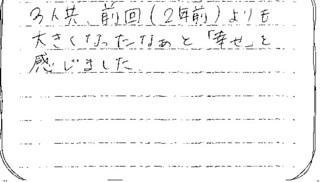 3人共、前回(2年前)よりも
大きくなったなぁと「幸せ」と
感じました